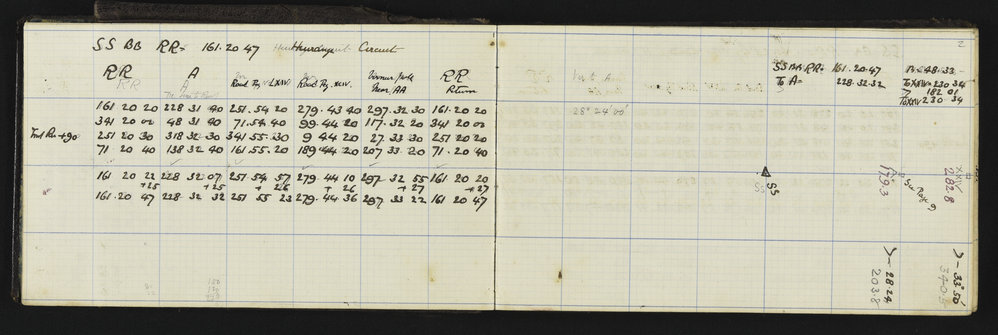 SS BB RR = 161.20 47 Circuit
RR A Road Pg. LXIV. Road Pg. XIV. RR
RR A AA Return
161 20 20 228 31 40 251.54 20 279.43 40 297.32 30 161.20 20
341 20 00 48 31 40 71.54 20 99.44 20 117.32 20 341 20 00
251 20 30 318 32 30 341 55.30 9 44 20 27 33 30 251 20 20
71 20 40 138 32 40 161.55.20 189 44 20 207 33 20 71.20 40
161 20 22 228 32 07 251.54 57 279.44 10 297 32 55 161 20 20
+25 +25 + 26 + 26 + 27 + 27
161.20 47 228 32 32 251 55 23 279.44 36 297 33 22 161 20 47
2
28° 24' 00"
SS BB RR = 161.20.47
To A = 228.32.32
48.33
To XXIV 230 34
182 01
To XXIV 230 34
SS
SS
179.3
See Page 9
XXIV
282.8
28.24
203.8
33° 50'